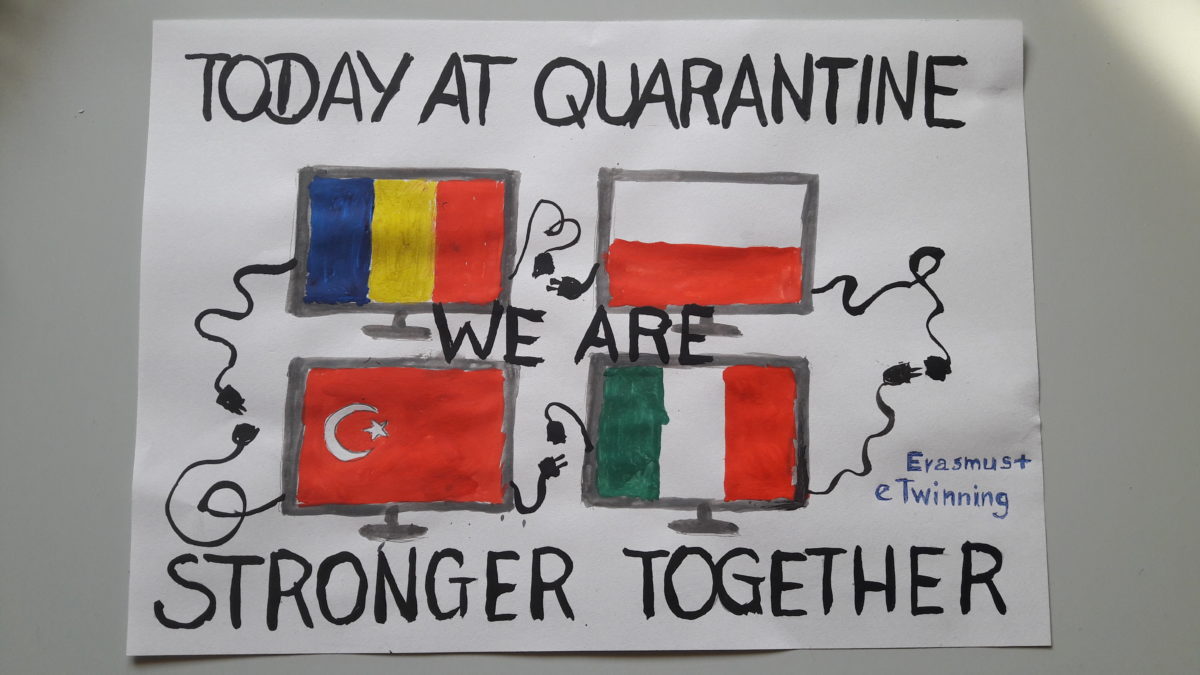 TODAY AT QUARANTINE
WE ARE
Erasmus+
eTwinning
STRONGER TOGETHER